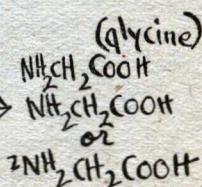 (glycine)
NH₂CH₂COOH
> NH₂CH₂COOH
or
2NH₂CH₂COOH